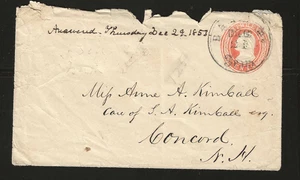 Answered. Thursday Dec 29. 1853
Miss Anne A. Kimball
Care of S. A. Kimball esq.
Concord
N. H.